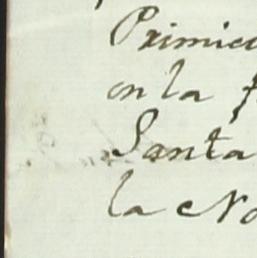 Primici
en la
Santa
la No